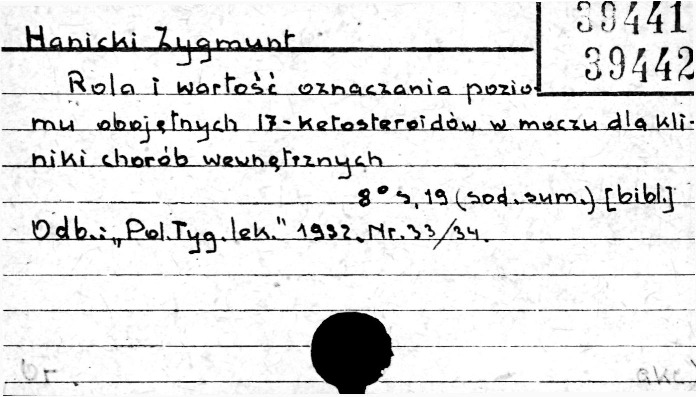 39441
39442
Hanicki Zygmunt
Rola i wartość oznaczania pozio-
mu obojętnych 17-ketosteroidów w moczu dla kli-
niki chorób wewnętrznych
8° s, 19 (sod. sum.) [bibl.]
Odb.: „Pol. Tyg. lek." 1952. Nr. 33/34.
br.
akc